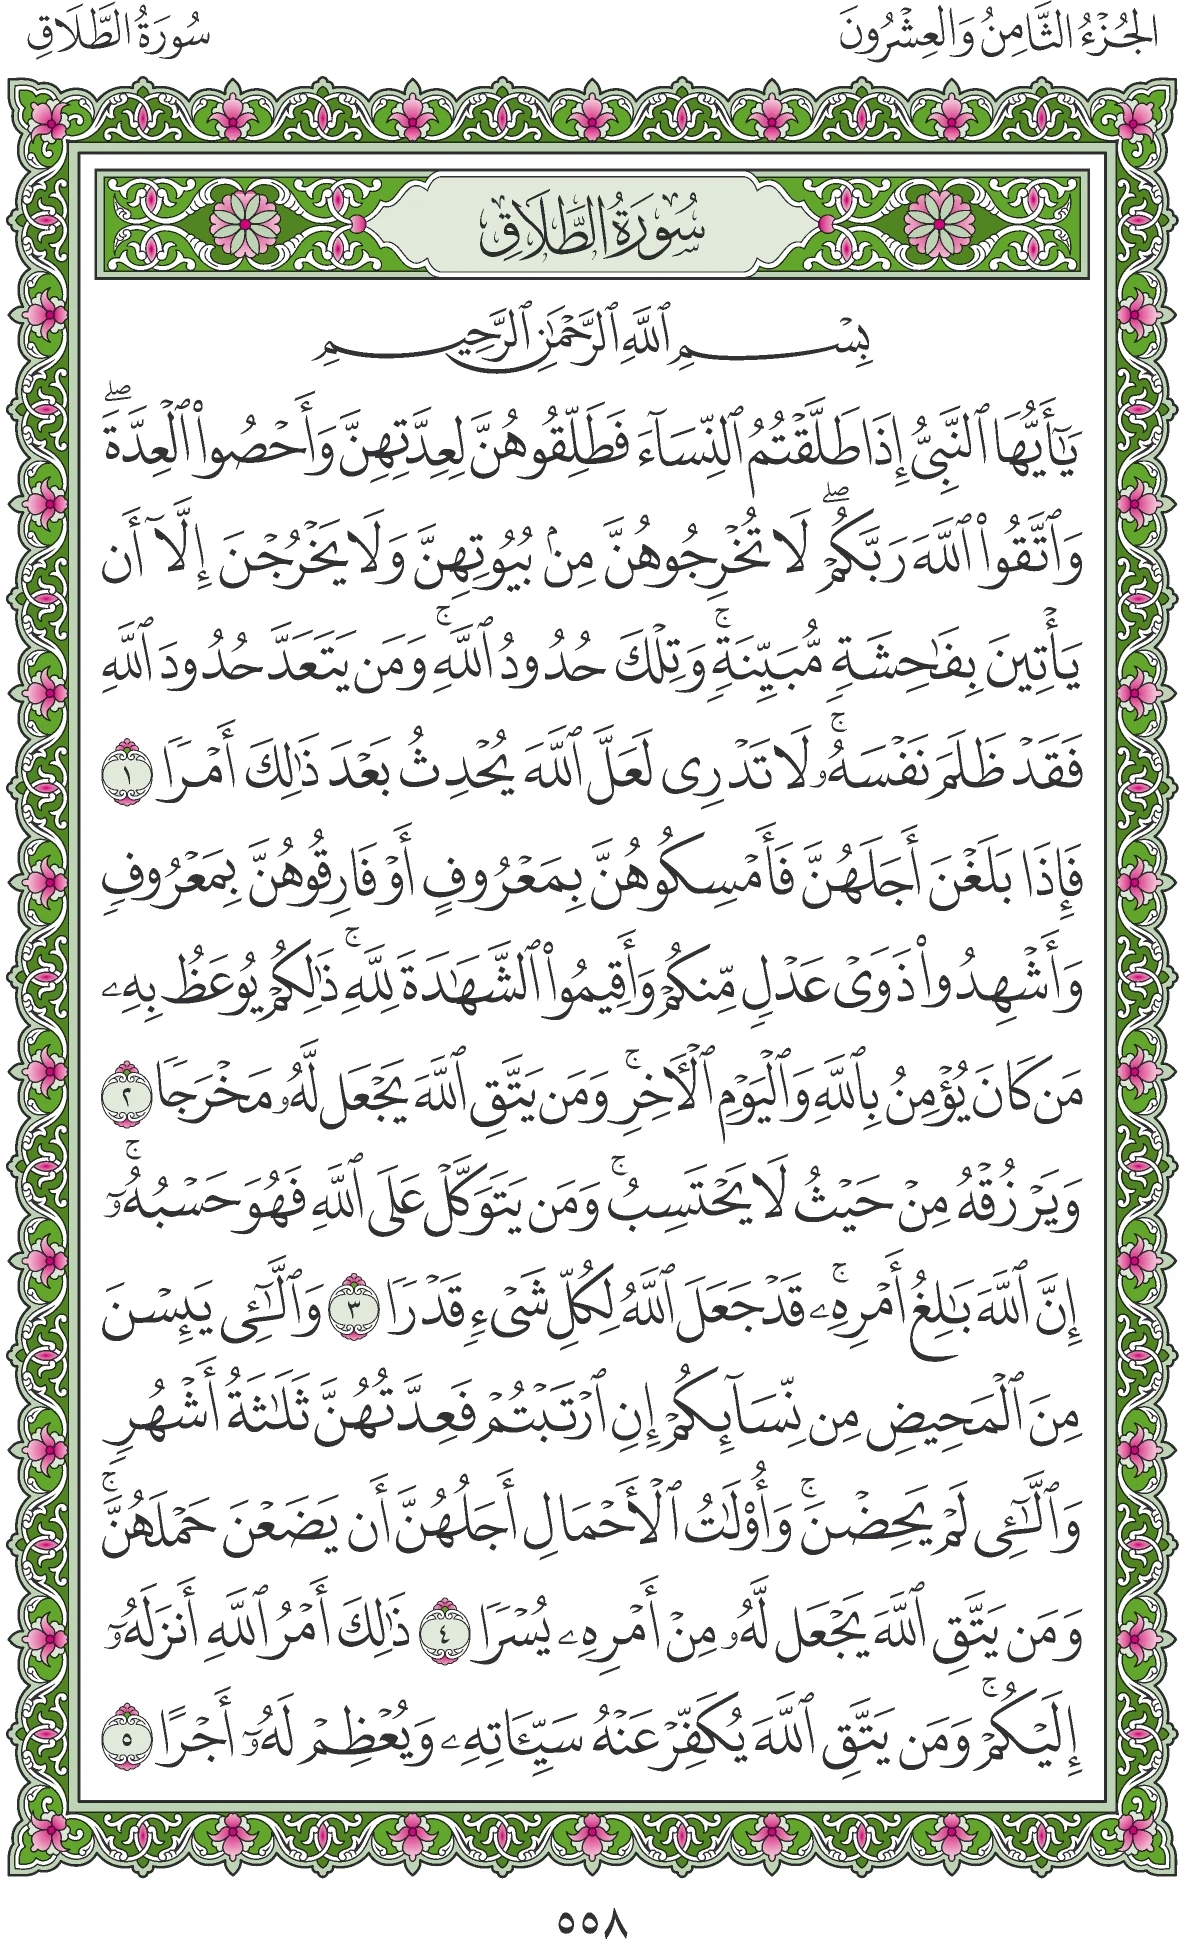 الجُزْءُ الثَّامِنُ وَالعِشْرُونَ
سُورَةُ الطَّلَاقِ
سُورَةُ الطَّلَاقِ
بِسْمِ ٱللَّهِ ٱلرَّحْمَٰنِ ٱلرَّحِيمِ
يَٰٓأَيُّهَا ٱلنَّبِىُّ إِذَا طَلَّقْتُمُ ٱلنِّسَآءَ فَطَلِّقُوهُنَّ لِعِدَّتِهِنَّ وَأَحْصُوا۟ ٱلْعِدَّةَ ۖ
وَٱتَّقُوا۟ ٱللَّهَ رَبَّكُمْ ۖ لَا تُخْرِجُوهُنَّ مِنۢ بُيُوتِهِنَّ وَلَا يَخْرُجْنَ إِلَّآ أَن
يَأْتِينَ بِفَٰحِشَةٍ مُّبَيِّنَةٍ ۚ وَتِلْكَ حُدُودُ ٱللَّهِ ۚ وَمَن يَتَعَدَّ حُدُودَ ٱللَّهِ
فَقَدْ ظَلَمَ نَفْسَهُۥ ۚ لَا تَدْرِى لَعَلَّ ٱللَّهَ يُحْدِثُ بَعْدَ ذَٰلِكَ أَمْرًا ١
فَإِذَا بَلَغْنَ أَجَلَهُنَّ فَأَمْسِكُوهُنَّ بِمَعْرُوفٍ أَوْ فَارِقُوهُنَّ بِمَعْرُوفٍ
وَأَشْهِدُوا۟ ذَوَىْ عَدْلٍ مِّنكُمْ وَأَقِيمُوا۟ ٱلشَّهَٰدَةَ لِلَّهِ ۚ ذَٰلِكُمْ يُوعَظُ بِهِۦ
مَن كَانَ يُؤْمِنُ بِٱللَّهِ وَٱلْيَوْمِ ٱلْأَخِرِ ۚ وَمَن يَتَّقِ ٱللَّهَ يَجْعَل لَّهُۥ مَخْرَجًا ٢
وَيَرْزُقْهُ مِنْ حَيْثُ لَا يَحْتَسِبُ ۚ وَمَن يَتَوَكَّلْ عَلَى ٱللَّهِ فَهُوَ حَسْبُهُۥٓ ۚ
إِنَّ ٱللَّهَ بَٰلِغُ أَمْرِهِۦ ۚ قَدْ جَعَلَ ٱللَّهُ لِكُلِّ شَىْءٍ قَدْرًا ٣ وَٱلَّٰٓـِٔى يَئِسْنَ
مِنَ ٱلْمَحِيضِ مِن نِّسَآئِكُمْ إِنِ ٱرْتَبْتُمْ فَعِدَّتُهُنَّ ثَلَٰثَةُ أَشْهُرٍ
وَٱلَّٰٓـِٔى لَمْ يَحِضْنَ ۚ وَأُو۟لَٰتُ ٱلْأَحْمَالِ أَجَلُهُنَّ أَن يَضَعْنَ حَمْلَهُنَّ ۚ
وَمَن يَتَّقِ ٱللَّهَ يَجْعَل لَّهُۥ مِنْ أَمْرِهِۦ يُسْرًا ٤ ذَٰلِكَ أَمْرُ ٱللَّهِ أَنزَلَهُۥٓ
إِلَيْكُمْ ۚ وَمَن يَتَّقِ ٱللَّهَ يُكَفِّرْ عَنْهُ سَيِّـَٔاتِهِۦ وَيُعْظِمْ لَهُۥٓ أَجْرًا ٥
٥٥٨